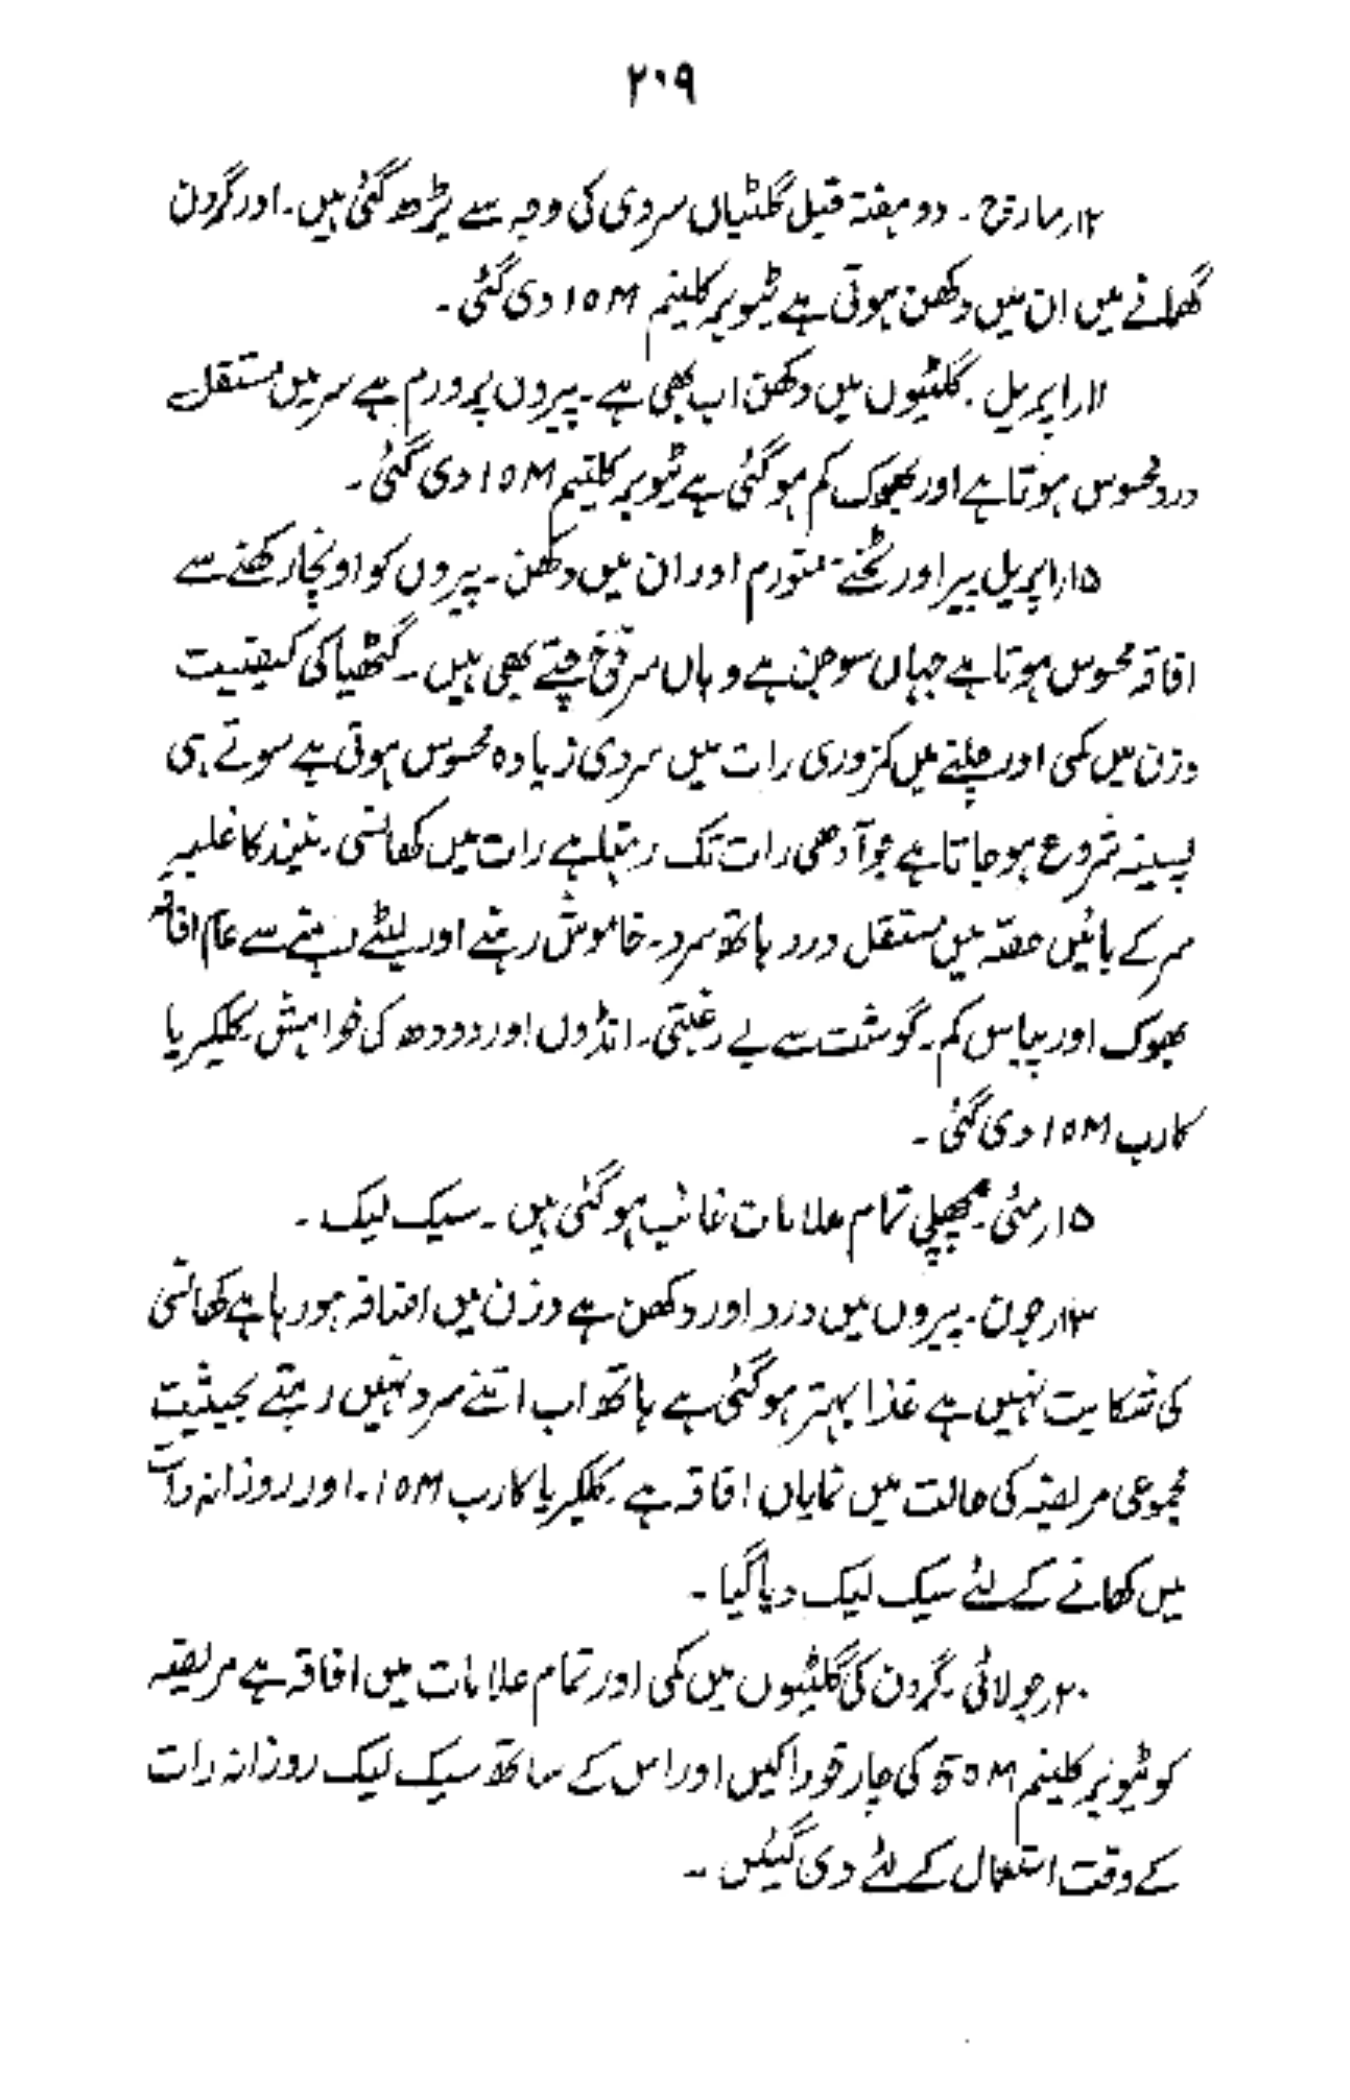 ۲۰۹
۱۲ر مارچ ۔ دو ہفتہ قبل گلٹیاں سردی کی وجہ سے بڑھ گئی ہیں۔ اور گردن
گھمانے میں ان میں دکھن ہوتی ہے ٹیوبر کلینم ۱۰M دی گئی ۔
۱۱ر اپریل ۔ گلٹیوں میں دکھن اب بھی ہے ۔ پیروں پر ورم ہے سر میں مستقل
درد محسوس ہوتا ہے اور بھوک کم ہو گئی ہے ٹیوبر کلینم ۱۰M دی گئی ۔
۱۵ر اپریل پیر اور ٹخنے متورم اور ان میں دکھن ۔ پیروں کو اونچا رکھنے سے
افاقہ محسوس ہوتا ہے جہاں سوجن ہے وہاں سرخ چتے بھی ہیں ۔ گٹھیا کی کیفیت
وزن میں کمی اور چلنے میں کمزوری رات میں سردی زیادہ محسوس ہوتی ہے سوتے ہی
پسینہ شروع ہو جاتا ہے جو آدھی رات تک رہتا ہے رات میں کھانسی ۔ نیند کا غلبہ
سر کے بائیں حصّہ میں مستقل درد ہاتھ سرد ۔ خاموش رہنے اور لیٹے رہنے سے عام افاقہ
بھوک اور پیاس کم ۔ گوشت سے بے رغبتی ۔ انڈوں اور دودھ کی خواہش ۔ کلکیریا
کارب ۱۰M دی گئی ۔
۱۵ر مئی ۔ پچھلی تمام علامات غائب ہو گئی ہیں ۔ سیک لیک ۔
۱۳ر جون ۔ پیروں میں درد اور دکھن ہے وزن میں اضافہ ہو رہا ہے کھانسی
کی شکایت نہیں ہے غذا بہتر ہو گئی ہے ہاتھ اب اتنے سرد نہیں رہتے بحیثیت
مجموعی مریضہ کی حالت میں نمایاں افاقہ ہے ۔ کلکیریا کارب ۱۰M ۔ اور روزانہ رات
میں کھانے کے لئے سیک لیک دیا گیا ۔
۲۰ر جولائی ۔ گردن کی گلٹیوں میں کمی اور تمام علامات میں افاقہ ہے مریضہ
کو ٹیوبر کلینم ۵۰M کی چار خوراکیں اور اس کے ساتھ سیک لیک روزانہ رات
کے وقت استعمال کے لئے دی گئیں ۔